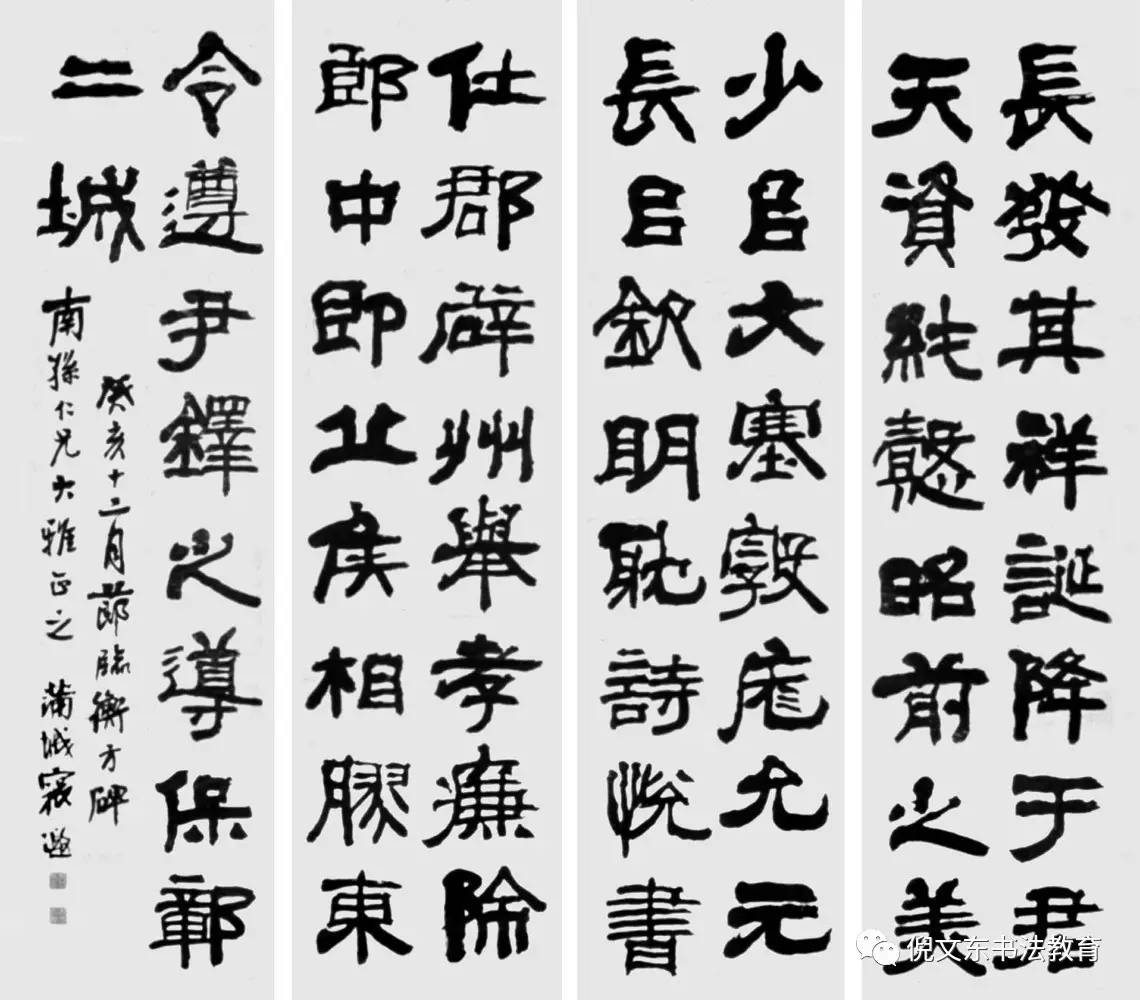 長發其祥誕降于君
天資純懿昭前之美
少㠯文塞敦庬允元
長㠯欽明耽詩悅書
仕郡辟州舉孝廉除
郎中即丘侯相膠東
令遵尹鐸之導保鄣
二城
癸亥十二月節臨衡方碑
南孫仁兄大雅正之 蒲城寇遐
倪文东书法教育